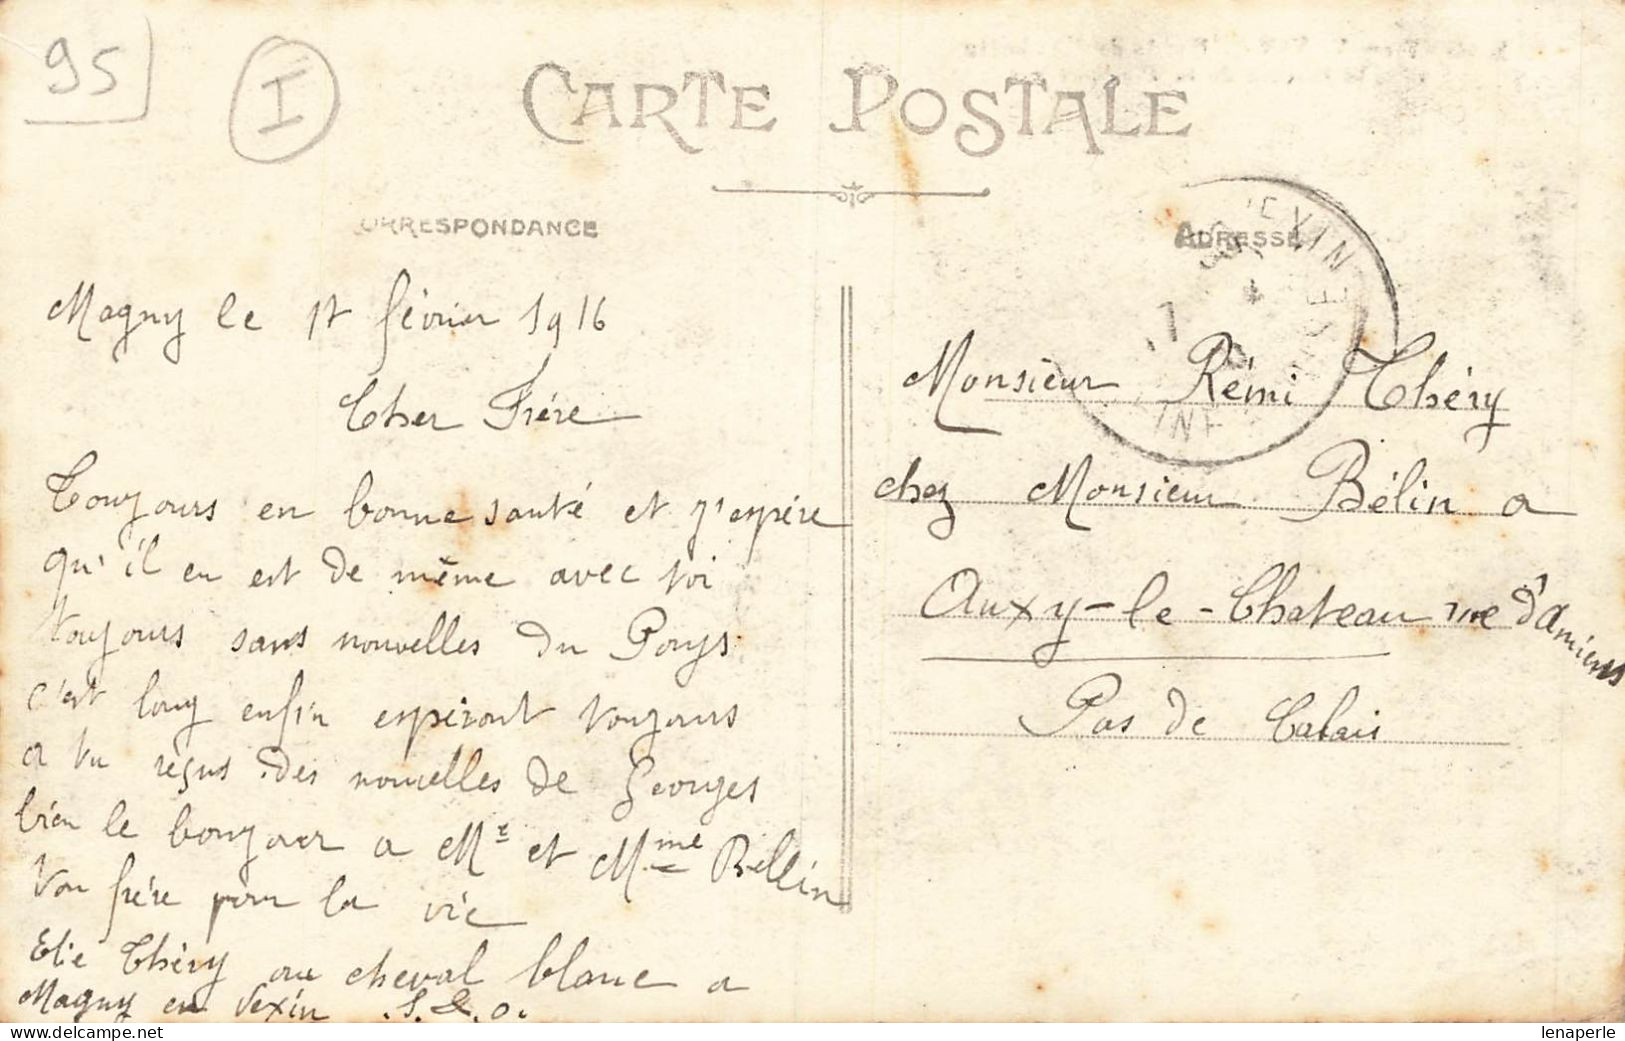 95
I
CARTE POSTALE
CORRESPONDANCE
ADRESSE
Magny le 17 février 1916
Cher Frère
Toujours en bonne santé et j'espère
qu'il en est de même avec toi
toujours sans nouvelles du Pays
c'est long enfin espéront toujours
a tu reçus des nouvelles de Georges
bien le bonjour a Mr et Mme Bellin
Ton frère pour la vie
Elie Théry au cheval blanc a
Magny en Vexin .S.&.O.
Monsieur Rémi Théry
chez Monsieur Bélin a
Auxy-le-Chateau rue d'Amiens
Pas de Calais
delcampe.net
lenaperle